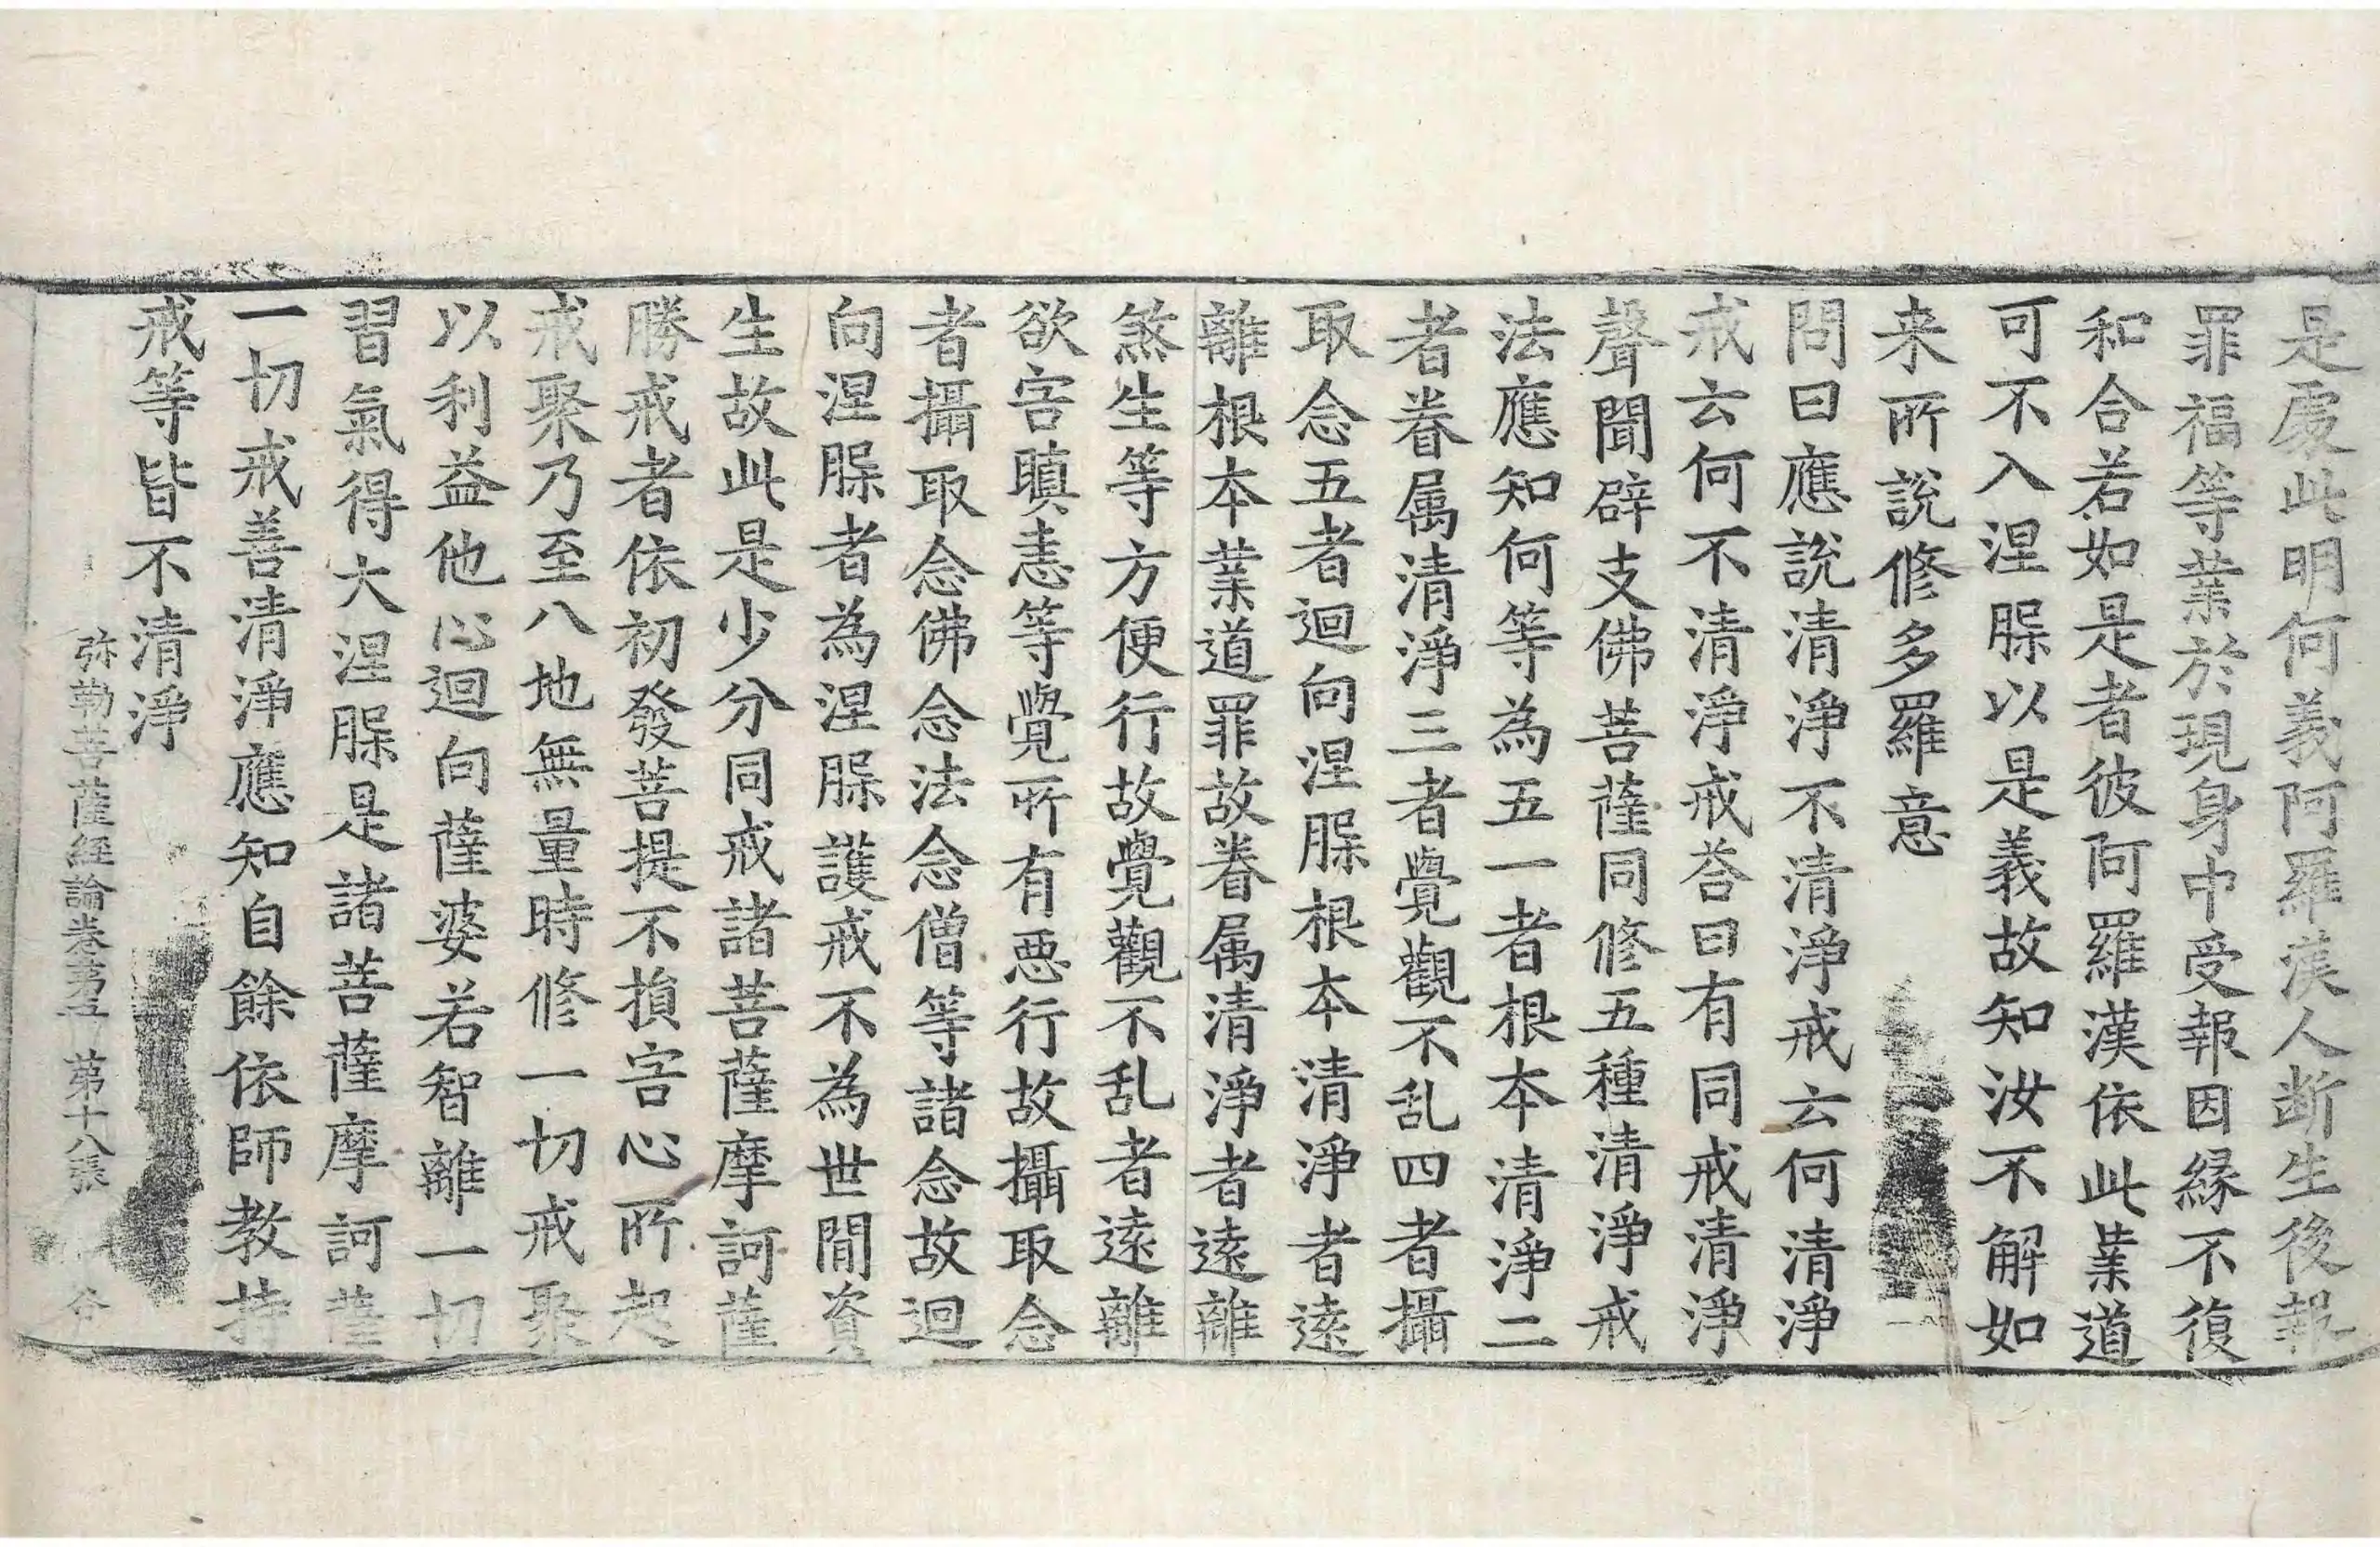 是處此明何義阿羅漢人断生後報
罪福等業於現身中受報因縁不復
和合若如是者彼阿羅漢依此業道
可不入涅槃以是義故知汝不解如
来所說修多羅意
問曰應說清淨不清淨戒云何清淨
戒云何不清淨戒荅曰有同戒清淨
聲聞辟支佛菩薩同修五種清淨戒
法應知何等為五一者根本清淨二
者眷属清淨三者覺觀不乱四者攝
取念五者迴向涅槃根本清淨者逺
離根本業道罪故眷属清淨者逺離
煞生等方便行故覺觀不乱者逺離
欲害瞋恚等覺所有惡行故攝取念
者攝取念佛念法念僧等諸念故迴
向涅槃者為涅槃護戒不為世間資
生故此是少分同戒諸菩薩摩訶薩
勝戒者依初發菩提不損害心所起
戒聚乃至八地無量時修一切戒聚
以利益他心迴向薩婆若智離一切
習氣得大涅槃是諸菩薩摩訶薩
一切戒善清淨應知自餘依師教持
戒等皆不清淨
弥勒菩薩經論卷第五 第十八張 谷